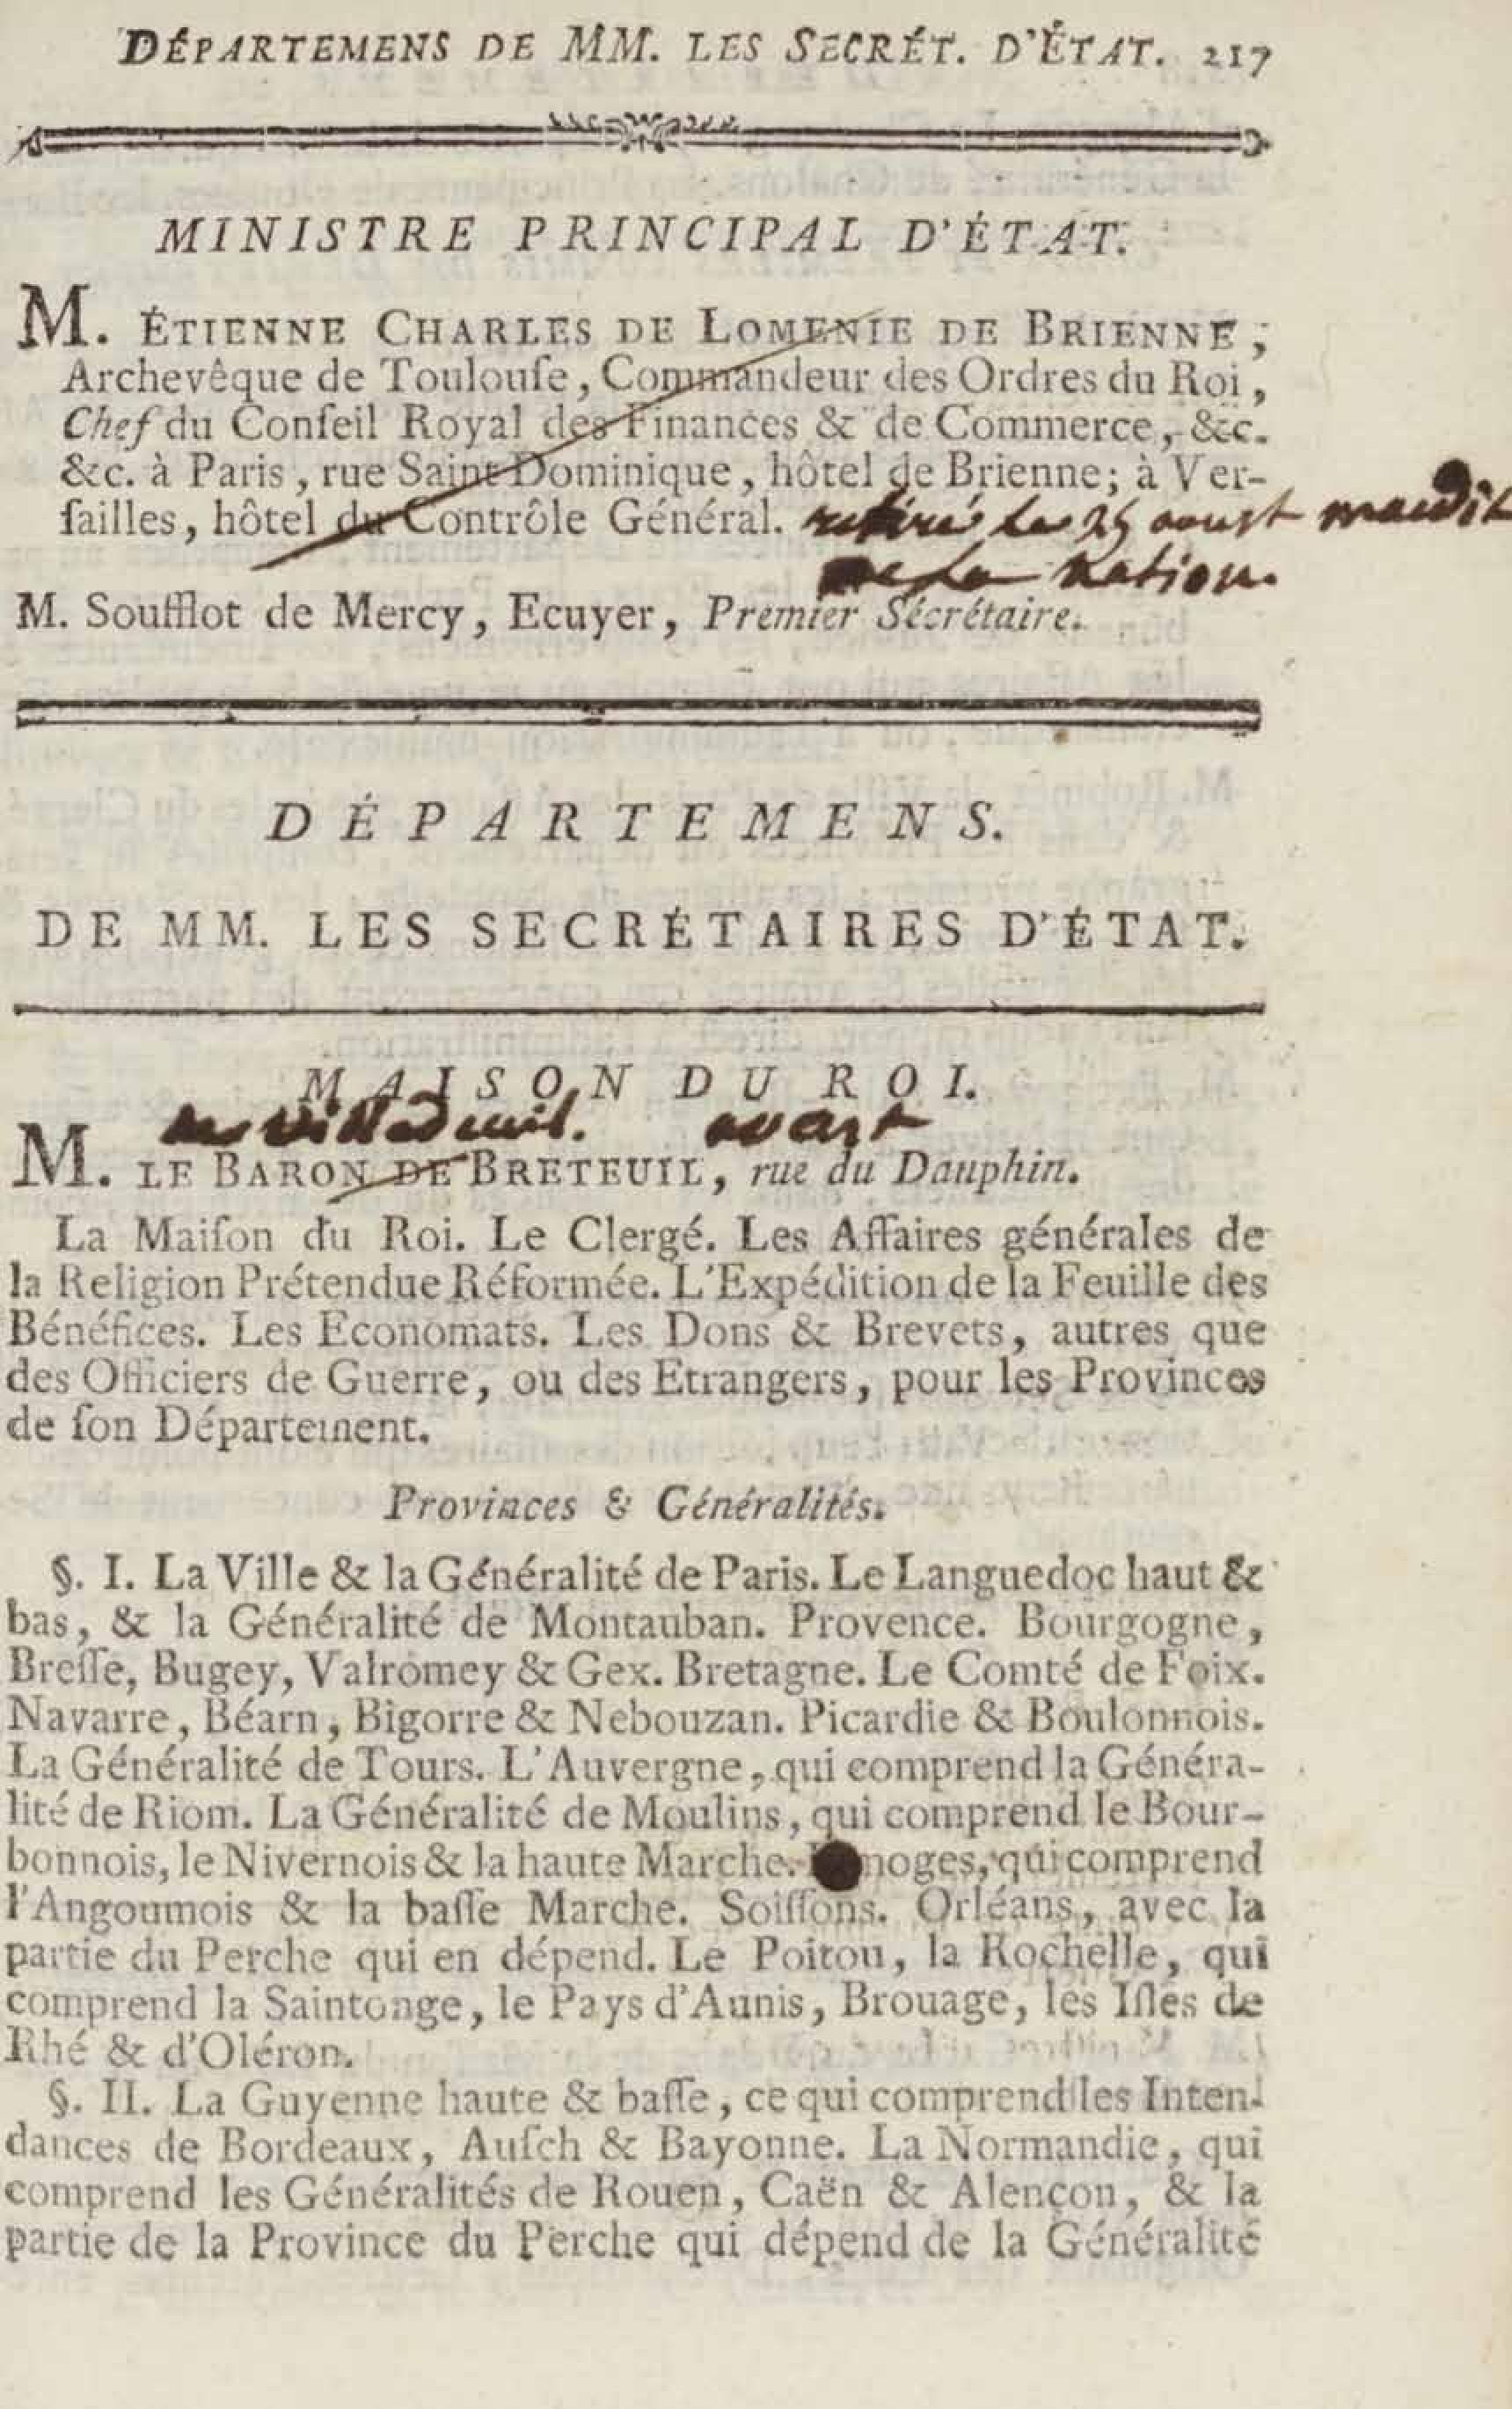 DÉPARTEMENS DE MM. LES SECRÉT. D'ÉTAT. 217
MINISTRE PRINCIPAL D'ÉTAT.
M. ÉTIENNE CHARLES DE LOMENIE DE BRIENNE,
Archevêque de Toulouſe, Commandeur des Ordres du Roi,
Chef du Conſeil Royal des Finances & de Commerce, &c.
&c. à Paris, rue Saint Dominique, hôtel de Brienne; à Ver-
ſailles, hôtel du Contrôle Général. retiré le 25 aoust maudit
de la nation.
M. Soufflot de Mercy, Ecuyer, Premier Sécrétaire.
DÉPARTEMENS.
DE MM. LES SECRÉTAIRES D'ÉTAT.
MAISON DU ROI.
de villedeuil. avant
M. LE BARON DE BRETEUIL, rue du Dauphin.
La Maiſon du Roi. Le Clergé. Les Affaires générales de
la Religion Prétendue Réformée. L'Expédition de la Feuille des
Bénéfices. Les Economats. Les Dons & Brevets, autres que
des Officiers de Guerre, ou des Etrangers, pour les Provinces
de ſon Département.
Provinces & Généralités.
§. I. La Ville & la Généralité de Paris. Le Languedoc haut &
bas, & la Généralité de Montauban. Provence. Bourgogne,
Breſſe, Bugey, Valromey & Gex. Bretagne. Le Comté de Foix.
Navarre, Béarn, Bigorre & Nebouzan. Picardie & Boulonnois.
La Généralité de Tours. L'Auvergne, qui comprend la Généra-
lité de Riom. La Généralité de Moulins, qui comprend le Bour-
bonnois, le Nivernois & la haute Marche. Limoges, qui comprend
l'Angoumois & la baſſe Marche. Soiſſons. Orléans, avec la
partie du Perche qui en dépend. Le Poitou, la Rochelle, qui
comprend la Saintonge, le Pays d'Aunis, Brouage, les Iſles de
Rhé & d'Oléron.
§. II. La Guyenne haute & baſſe, ce qui comprend les Inten-
dances de Bordeaux, Auſch & Bayonne. La Normandie, qui
comprend les Généralités de Rouen, Caën & Alençon, & la
partie de la Province du Perche qui dépend de la Généralité